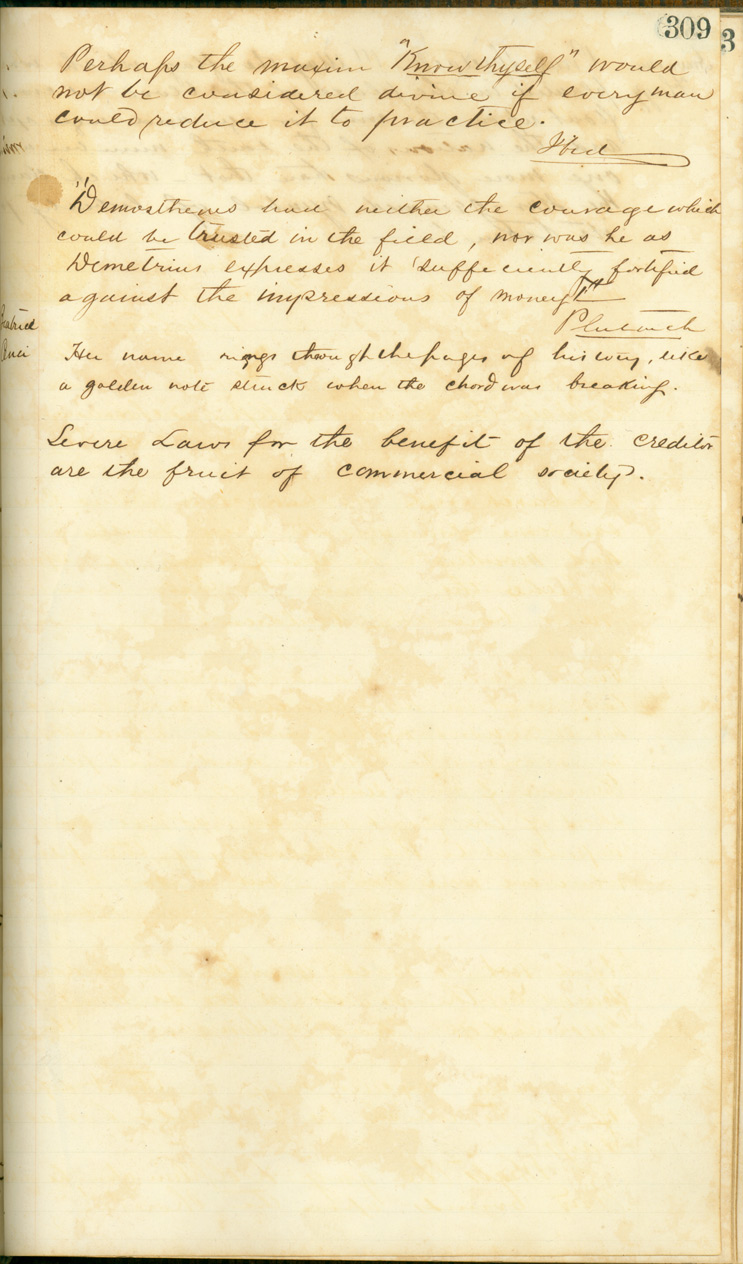 309
3
Perhaps the maxim "Know thyself" would
not be considered divine if every man
could reduce it to practice.
Ibid
"Demosthenes had neither the courage which
could be trusted in the field, nor was he as
Demetrius expresses it 'sufficiently fortified
against the impressions of money'"
Plutarch
Her name rings through the pages of history, like
a golden note struck when the chord was breaking.
Severe Laws for the benefit of the creditor
are the fruit of commercial society.